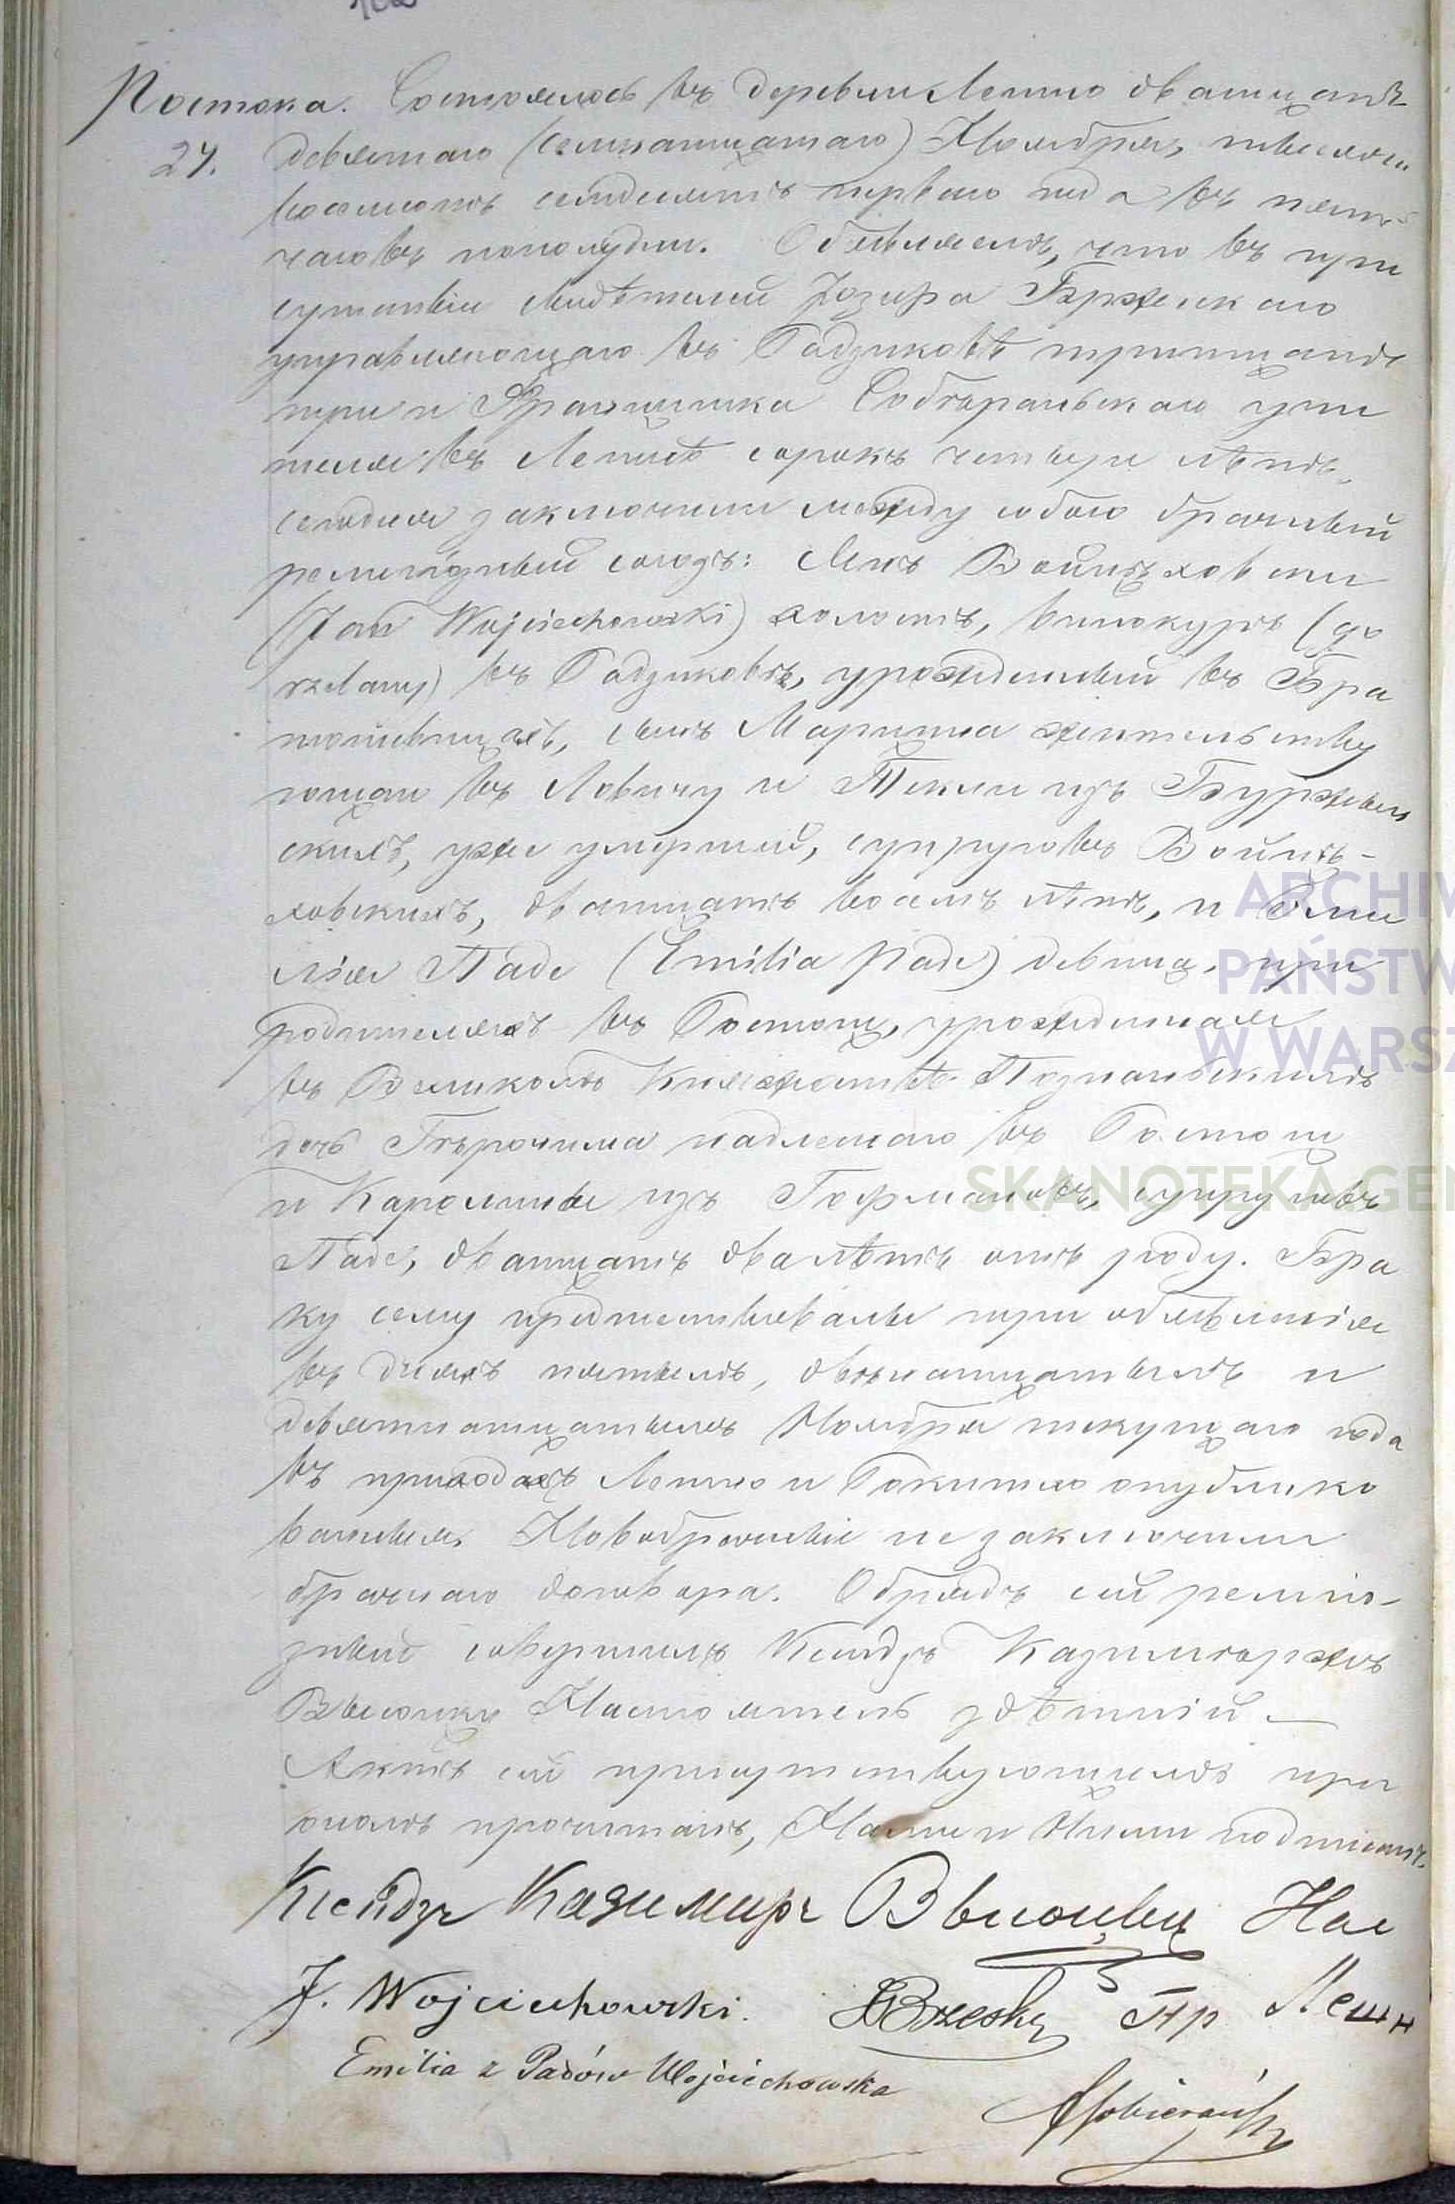 Ростока. Состоялось въ деревни Лешно двадцать
24. девятаго (семнадцатаго) Ноября, тысяча
восемсотъ семдесятъ перваго года въ пять
часовъ пополудни. Объявляемъ, что въ при
сутствіи свидѣтелей Іозефа Бржескаго
управляющаго въ Радзиковѣ тритцать
три и Францишка Собѣраньскаго учи
теля въ Лешнѣ сорокъ четыре лѣтъ,
сегодня заключили между собою брачный
религіозный союзъ: Янъ Войцѣховски
(Jan Wojciechowski) холостъ, винокуръ (go
rzelany) въ Радзиковѣ, урожденный въ Бра
тошевицахъ, сынъ Марцина жительству
ющаго въ Ловичу и Текли изъ Буржевин
скихъ, уже умершей, супруговъ Войцѣ-
ховскихъ, двадцать восемъ лѣтъ, и Эми
лія Паде (Emilia Pade) девица, при
родителяхъ въ Ростоце, урожденная
въ Великомъ Княжествѣ Познаньскимъ
дочь Гѣронима надлеснаго въ Ростоце
и Каролины изъ Гофмановъ, супруговъ
Паде, двадцать два лѣтъ отъ роду. Бра
ку сему предшествовалы три объявленія
въ дняхъ пятымъ, двѣнадцатымъ и
девятнадцатымъ Ноября текущаго года
въ приходахъ Лешно и Рокитно опублико
ванныя. Новобрачныи незаключили
брачнаго договора. Обрядъ сей религіо-
зный совершилъ Ксендзъ Казимѣржъ
Высоцки Настоятель здѣшній.—
Актъ сей присутствующимъ при
ономъ прочитанъ, Нами и Ними подписанъ.
Ксендзъ Казимиръ Высоцкы Нас
J. Wojciechowski. JBrzeski Пр Лешн
Emilia z Padów Wojciechowska
FSobierański
ARCHIW
PAŃSTW
W WARSZ
SKANOTEKA.GEN